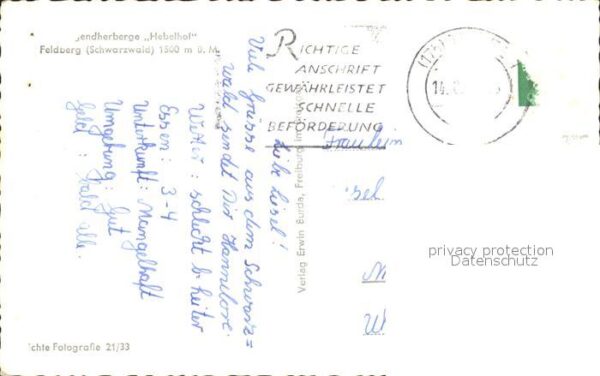 gendherberge „Hebelhof"
Feldberg (Schwarzwald) 1500 m ü. M.
RICHTIGE
ANSCHRIFT
GEWÄHRLEISTET
SCHNELLE
BEFÖRDERUNG
Liebe Liesel!
Viele Grüsse aus dem Schwarz=
wald sendet Dir Hannelore.
Wetter: schlecht b. heiter
Essen: 3-4
Unterkunft: Mangelhaft
Umgebung: Gut
Geld: Bald alle.
Verlag Erwin Burda, Freiburg im
Fräulein
sel
privacy protection
Datenschutz
chte Fotografie 21/33